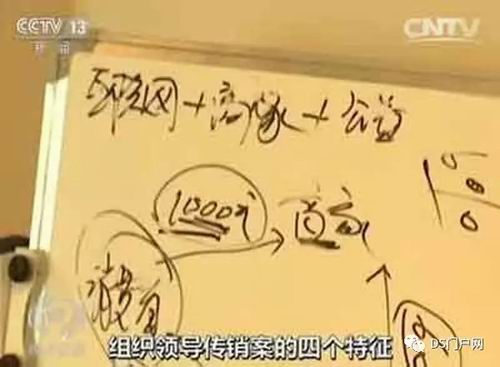 CCTV 13
新闻
CNTV
互联网+商家+公益
1000元
商家
消费者
组织领导传销案的四个特征
DS门户网